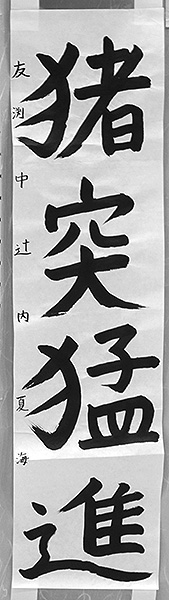 猪突猛進
友渕中 辻内夏海